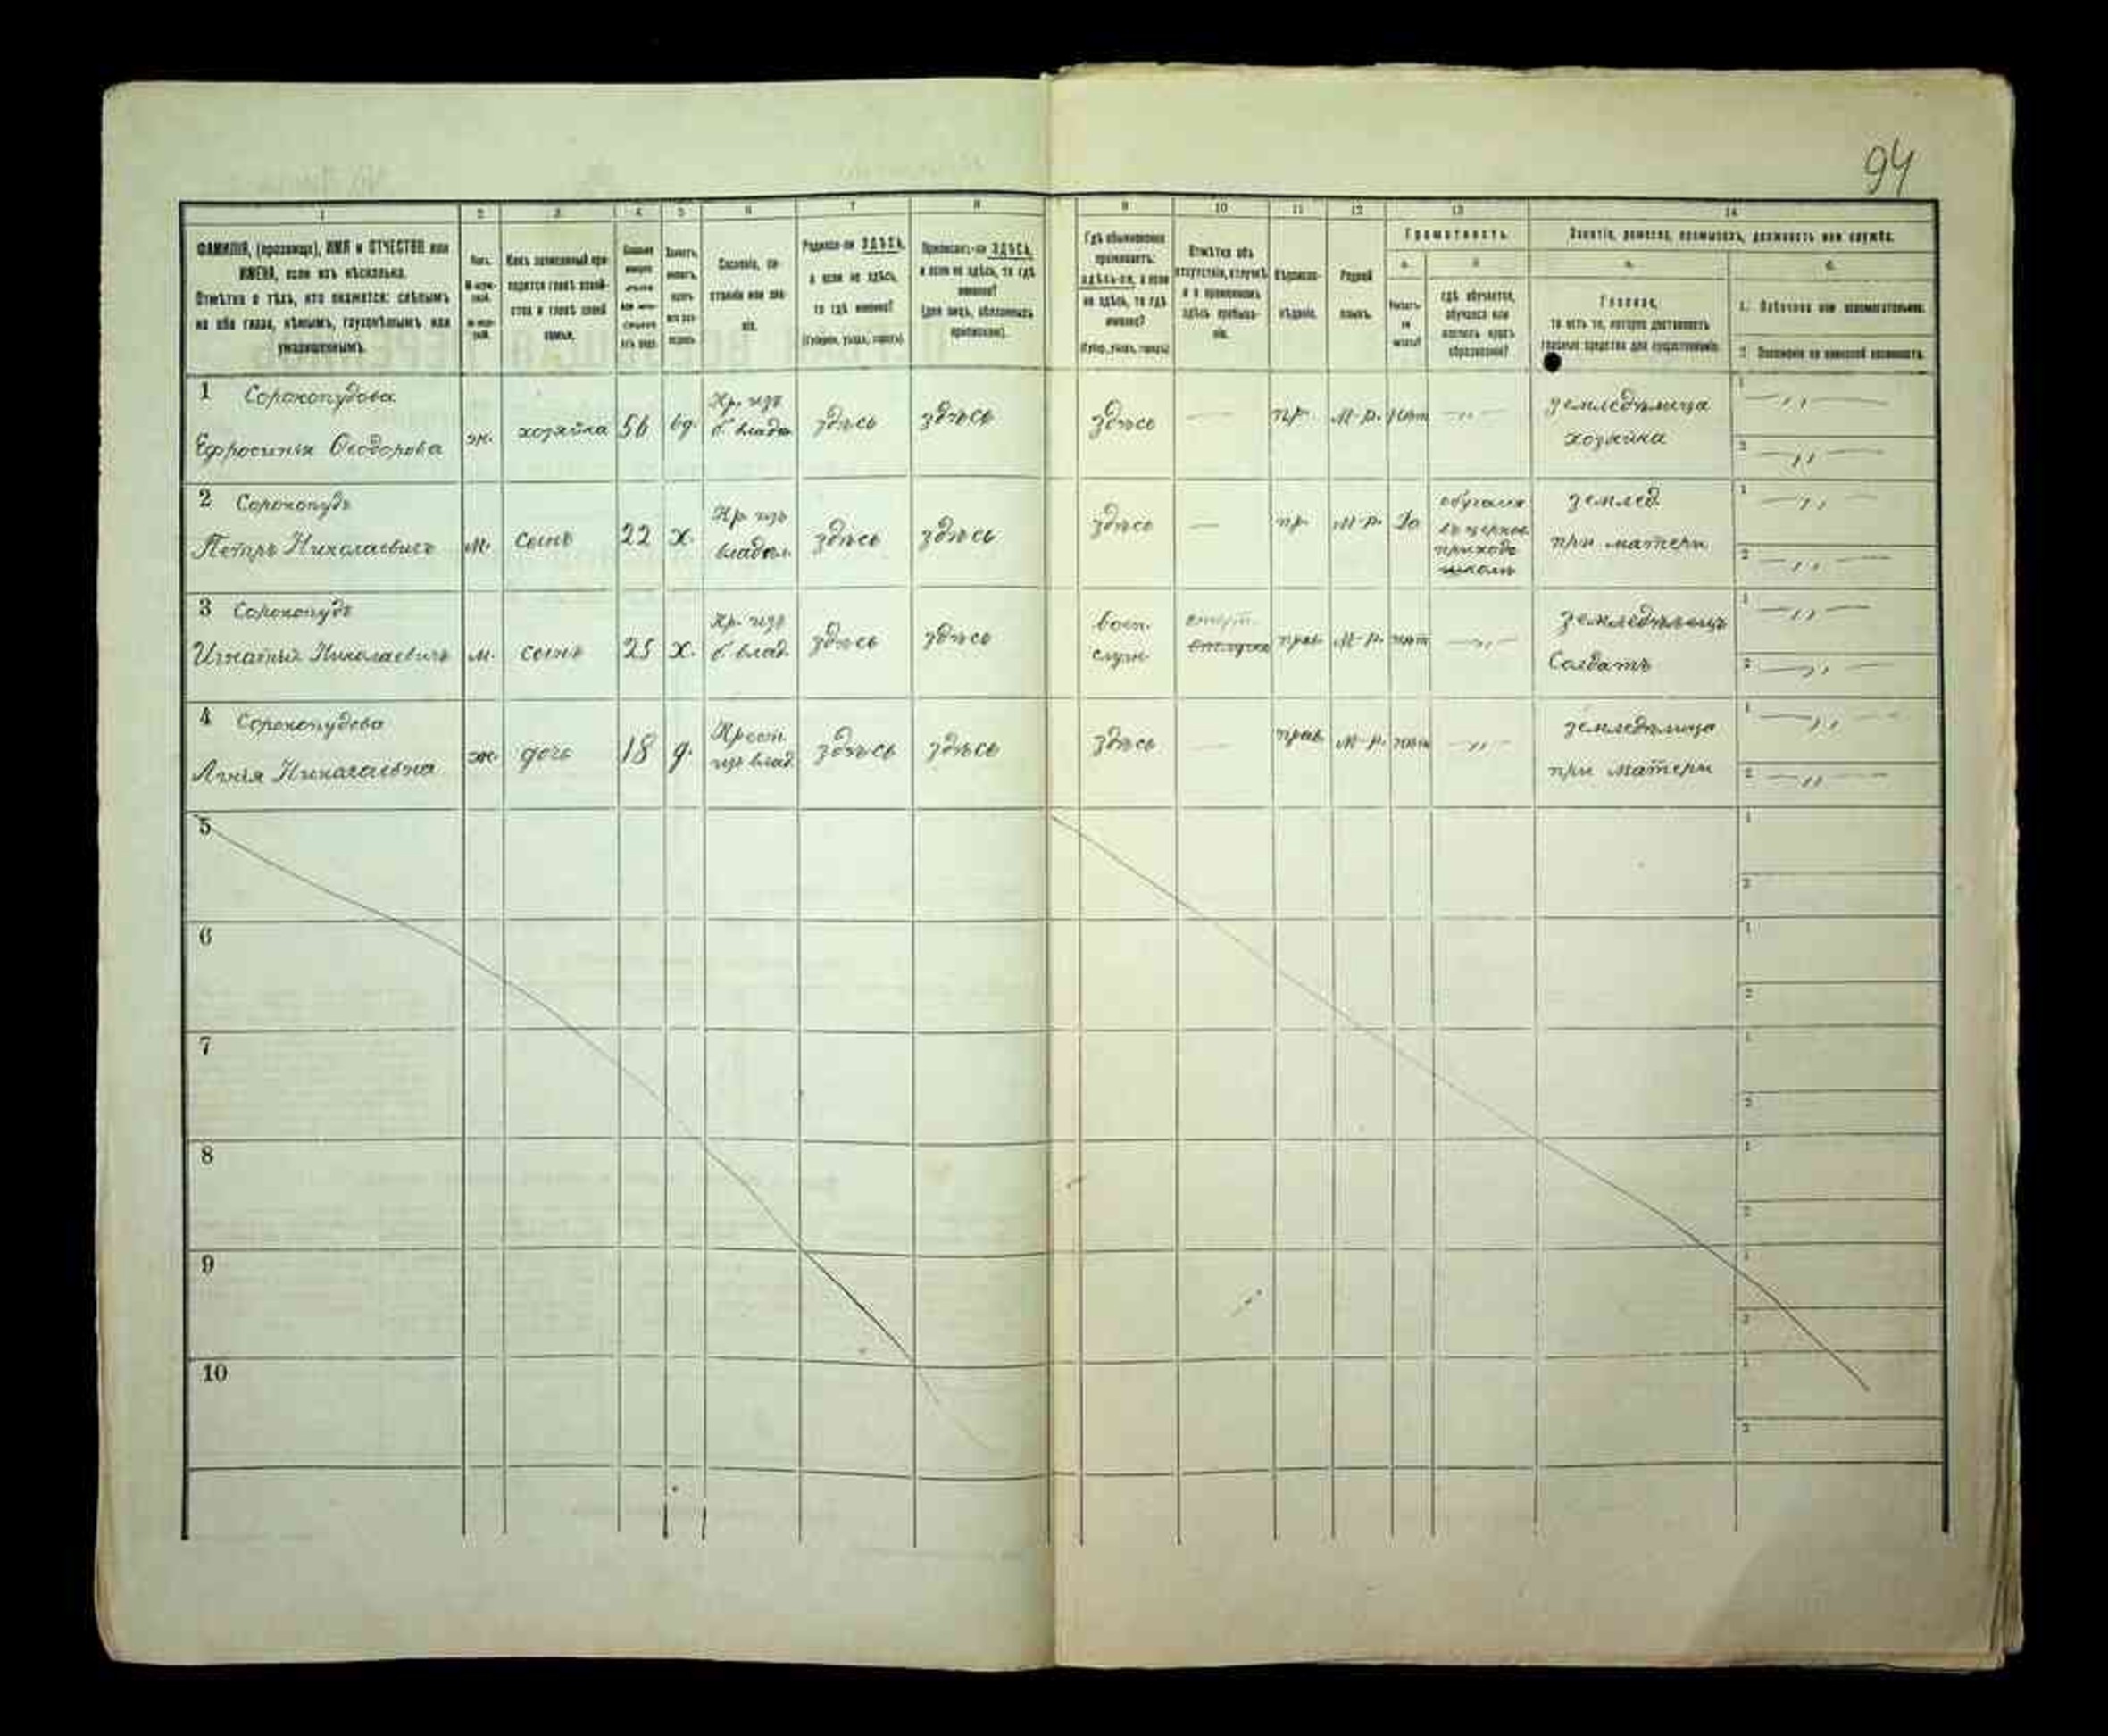 94
1 2 3 4 5 6 7 8 9 10 11 12 13 14
ФАМИЛІЯ, (прозвище), ИМЯ и ОТЧЕСТВО или
ИМЕНА, если ихъ нѣсколько.
Отмѣтка о тѣхъ, кто окажется: слѣпымъ
на оба глаза, нѣмымъ, глухонѣмымъ или
умалишеннымъ.
Полъ.
Какъ записанный при-
ходится главѣ хозяй-
ства и главѣ своей
семьи.
Сословіе, со-
стояніе или зва-
ніе.
Родился-ли ЗДѢСЬ,
а если не здѣсь,
то гдѣ именно?
(Губернія, уѣздъ, городъ).
Приписанъ-ли ЗДѢСЬ,
а если не здѣсь, то гдѣ
именно?
(для лицъ, обязанныхъ
припискою).
Гдѣ обыкновенно
проживаетъ:
здѣсь-ли, а если
не здѣсь, то гдѣ
именно?
(Губер., уѣздъ, городъ)
Отмѣтка объ
отсутствіи, отлучкѣ
и о временномъ
здѣсь пребыва-
ніи.
Вѣроиспо-
вѣданіе.
Родной
языкъ.
Грамотность.
а.
Умѣетъ-
ли
читать?
б.
гдѣ обучается,
обучался или
кончилъ курсъ
образованія?
Занятіе, ремесло, промыселъ, должность или служба.
а.
Главное,
то есть то, которое доставляетъ
главныя средства для существованія.
б.
1. Побочное или вспомогательное.
2. Положеніе по воинской повинности.
1 Сорокопудова
Ефросинья Ѳеодорова
ж. хозяйка 56 вд.
Кр. изъ
б. влад.
здѣсь здѣсь здѣсь — пр. М-р. нѣт —"—
земледѣлица
хозяйка
1 —"—
2 —"—
2 Сорокопудъ
Петръ Николаевичъ
м. сынъ 22 х.
Кр. изъ
владѣл.
здѣсь здѣсь здѣсь — пр. М-р. Да
обучался
въ церков.
приходс
школѣ
землед.
при матери
1 —"—
2 —"—
3 Сорокопудъ
Игнатій Николаевичъ
м. сынъ 25 х.
Кр. изъ
б. влад.
здѣсь здѣсь
воен.
служ.
прав. М-р. нѣт —"—
земледѣлецъ
Солдатъ
1 —"—
2 —"—
4 Сорокопудова
Анна Николаевна
ж. дочь 18 д.
Крест.
изъ влад.
здѣсь здѣсь здѣсь — прав. М-р. нѣт —"—
земледѣлица
при матери
1 —"—
2 —"—
5 1
2
6 1
2
7 1
2
8 1
2
9 1
2
10 1
2